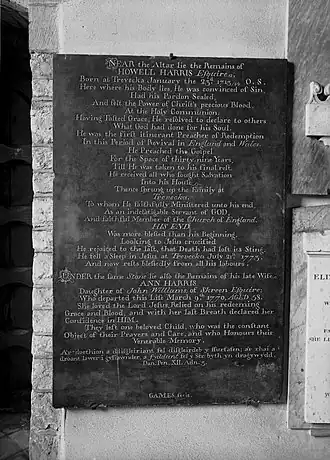 NEAR the Altar lie the Remains of
HOWELL HARRIS Esquire,
Born at Trevecka January the 23d. 1713/14 O. S.
Here where his Body lies, He was convinced of Sin,
Had his Pardon Sealed,
And felt the Power of Christ's precious Blood,
At the Holy Communion.
Having Tasted Grace, He resolved to declare to others
What God had done for his Soul.
He was the first itinerant Preacher of Redemption
In this Period of Revival in England and Wales.
He Preached the Gospel
For the Space of thirty nine Years,
Till He was taken to his final rest.
He received all who sought Salvation
Into his House.
Thence sprung up the Family at
Trevecka,
To whom He faithfully Ministered unto his end,
As an indefatigable Servant of GOD,
And faithful Member of the Church of England.
HIS END
Was more blessed than his Beginning.
Looking to Jesus crucified
He rejoiced to the last, that Death had lost its Sting.
He fell a Sleep in Jesus at Trevecka July 21st 1773.
And now rests blessedly from all his Labours.
UNDER the same Stone lie also the Remains of his late Wife
ANN HARRIS
Daughter of John Williams of Skreen Esquire;
Who departed this Life March 9th 1770, AGED 58.
She loved the Lord Jesus, Relied on his redeeming
Grace and Blood, and with her last Breath declared her
Confidence in HIM.
They left one beloved Child, who was the constant
Object of their Prayers and Care, and who Honours their
Venerable Memory.
A'r doethion a ddisgleiriant fel disgleirdeb y ffurfafen; a'r rhai a
droant lawer i gyfiawnder, a fyddant fel y Sêr byth yn dragywydd.
Dan. Pen. XII. Adn. 3.
GAMES
ELIZ